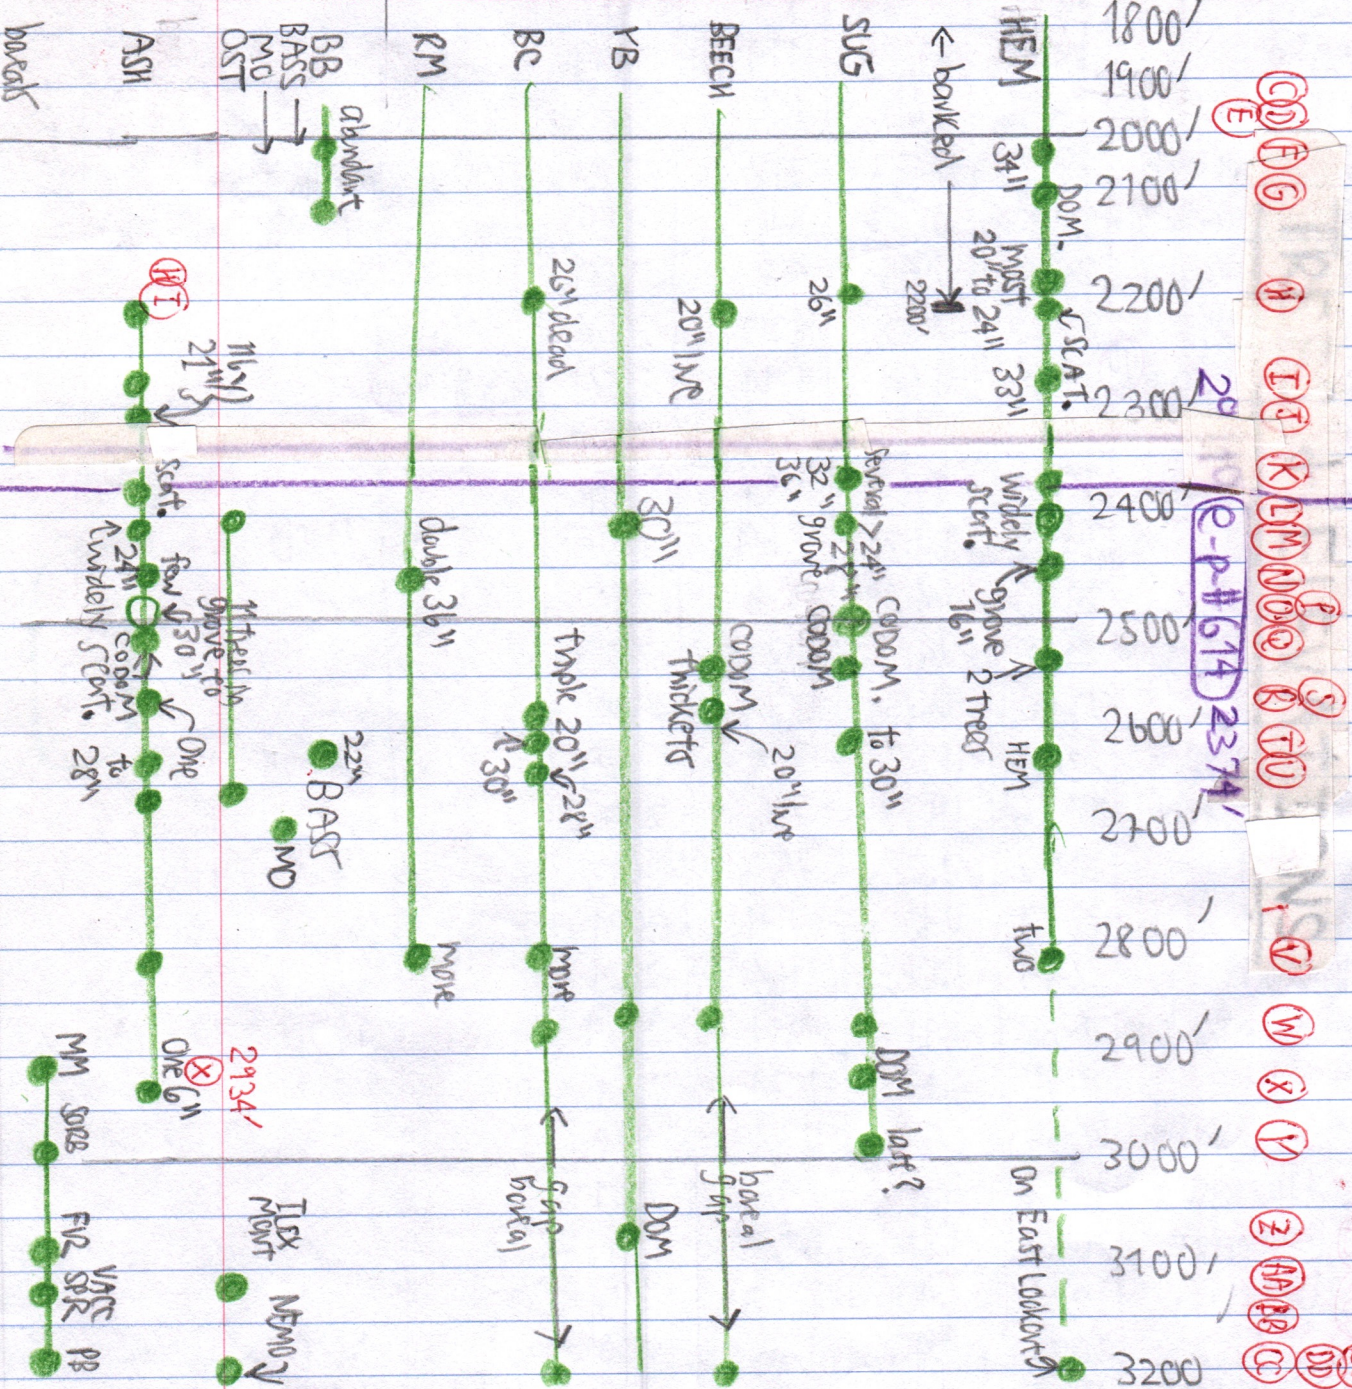 1800'
1900'
2000'
2100'
2200'
2300'
2400'
2500'
2600'
2700'
2800'
2900'
3000'
3100'
3200
C D E F G H I J K L M N O P Q R S T U V W X Y Z AA BB CC DD
e-p#614 2374'
HEM
34"
DOM.
most
20" to 24"
SCAT.
33"
widely
scat.
grove 2 trees
16"
HEM
two
on East Lookout
← banked
2200'
SUG
26"
several > 24"
32"
36"
grove
CODOM.
CODOM
to 30"
DOM
last?
BEECH
20" live
CODOM
thickets
20" live
boreal
gap
YB
30"
DOM
BC
26" dead
triple 20"
28"
30"
more
gap
boreal
RM
double 36"
more
BB
BASS
MO
OST
abundant
22"
BASS
MO
Ilex
Mont
NEMO
ASH
H I
21"
scat.
24"
widely scat.
few
30"
CODOM
one
to
28"
one 6"
X
2934'
boreals
MM
SORB
FIR
VACC
SPR
PB